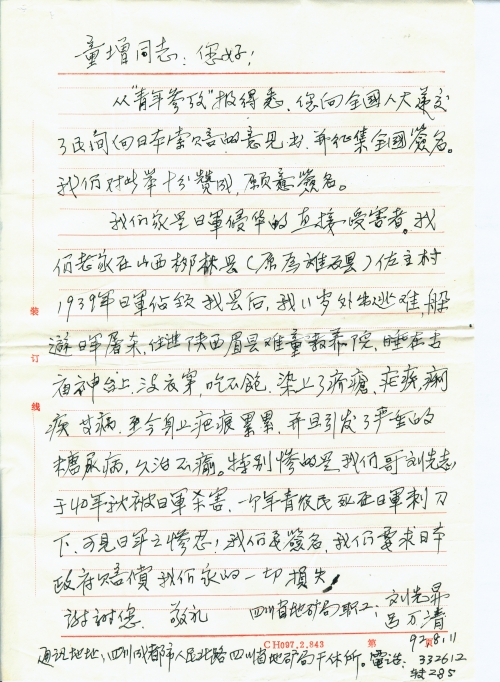 童增同志：您好！
从"青年参政"报得悉，您向全國人大递交
了民间向日本索赔的意见书，并征集全國簽名。
我们对此举十分贊成，願意簽名。
我们家是日軍侵华的直接受害者。我
们老家在山西柳林县（原为离石县）佐主村
1939年日軍佔领我县后，我11岁外出逃难，躲
避日軍屠杀，住進陕西眉县难童教养院，睡在古
庙神台上，没衣穿，吃不飽，染上了疥瘡、疟疾、痢
疾等病，至今身上疤痕累累，并且引发了严重的
糖尿病，久治不癒。特别惨的是我们哥刘先志，
于40年秋被日軍杀害，一个年青农民死在日軍刺刀
下，可見日军之惨忍！我们要簽名，我们要求日本
政府赔償我们家的一切損失！
謝謝您。 敬礼 四川省地矿局职工：刘先昴
吕万清
92.8.11
通讯地址：四川成都市人民北路四川省地矿局干休所。電话：332612
转285
装
订
线
CH097.2.843 第 页